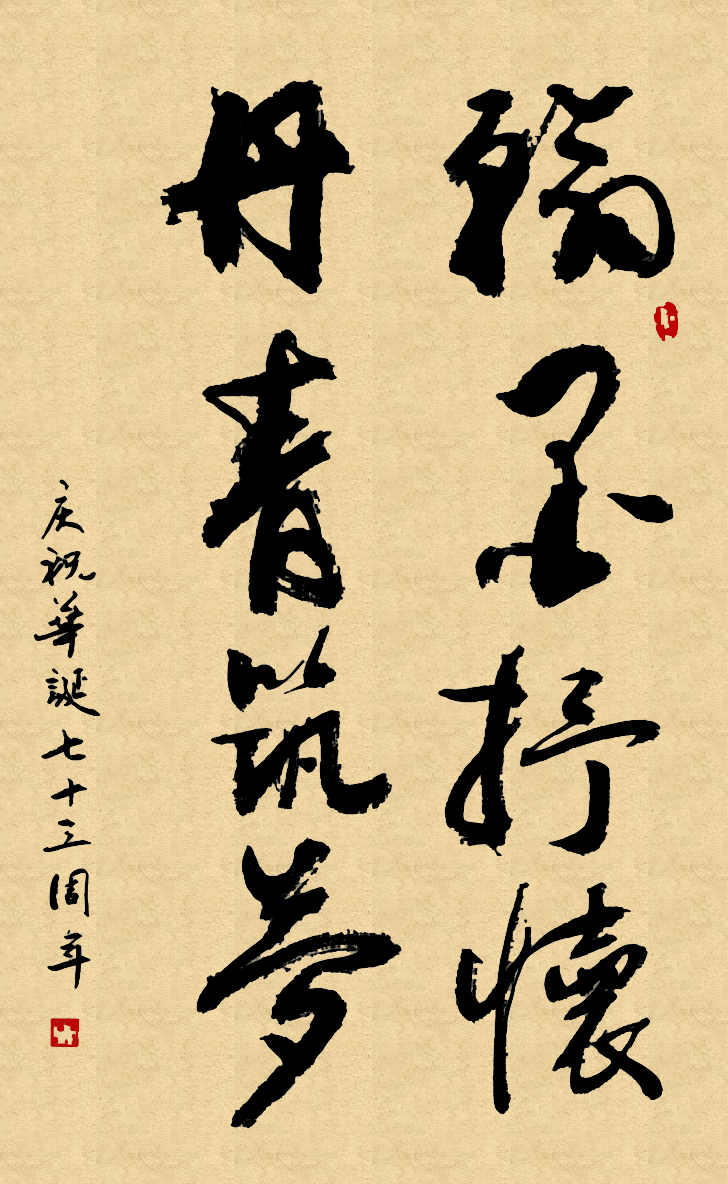 翰墨抒懷
丹青筑夢
庆祝華誕七十三周年